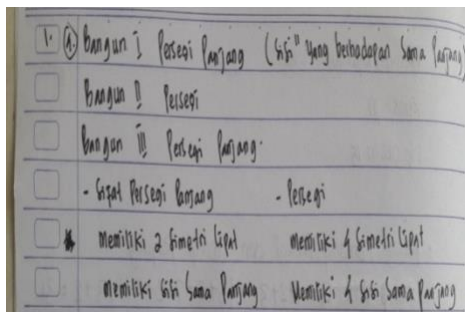 1. A. Bangun I Persegi Panjang (Sisi" yang berhadapan sama panjang)
Bangun II Persegi
Bangun III Persegi Panjang.
- Sifat Persegi Panjang - Persegi
memiliki 2 Simetri Lipat memiliki 4 Simetri Lipat
memiliki sisi Sama Panjang Memiliki 4 Sisi Sama Panjang